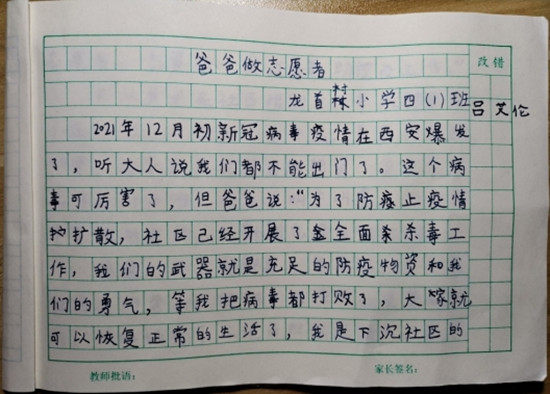 爸爸做志愿者
改错
龙首村小学四(1)班
吕艾伦
2021年12月初新冠病毒疫情在西安爆发
了，听大人说我们都不能出门了。这个病
毒可厉害了，但爸爸说：“为了防止疫情
扩散，社区已经开展了全面杀毒工
作，我们的武器就是充足的防疫物资和我
们的勇气，等我把病毒都打败了，大家就
可以恢复正常的生活了，我是下沉社区的
教师批语：
家长签名：